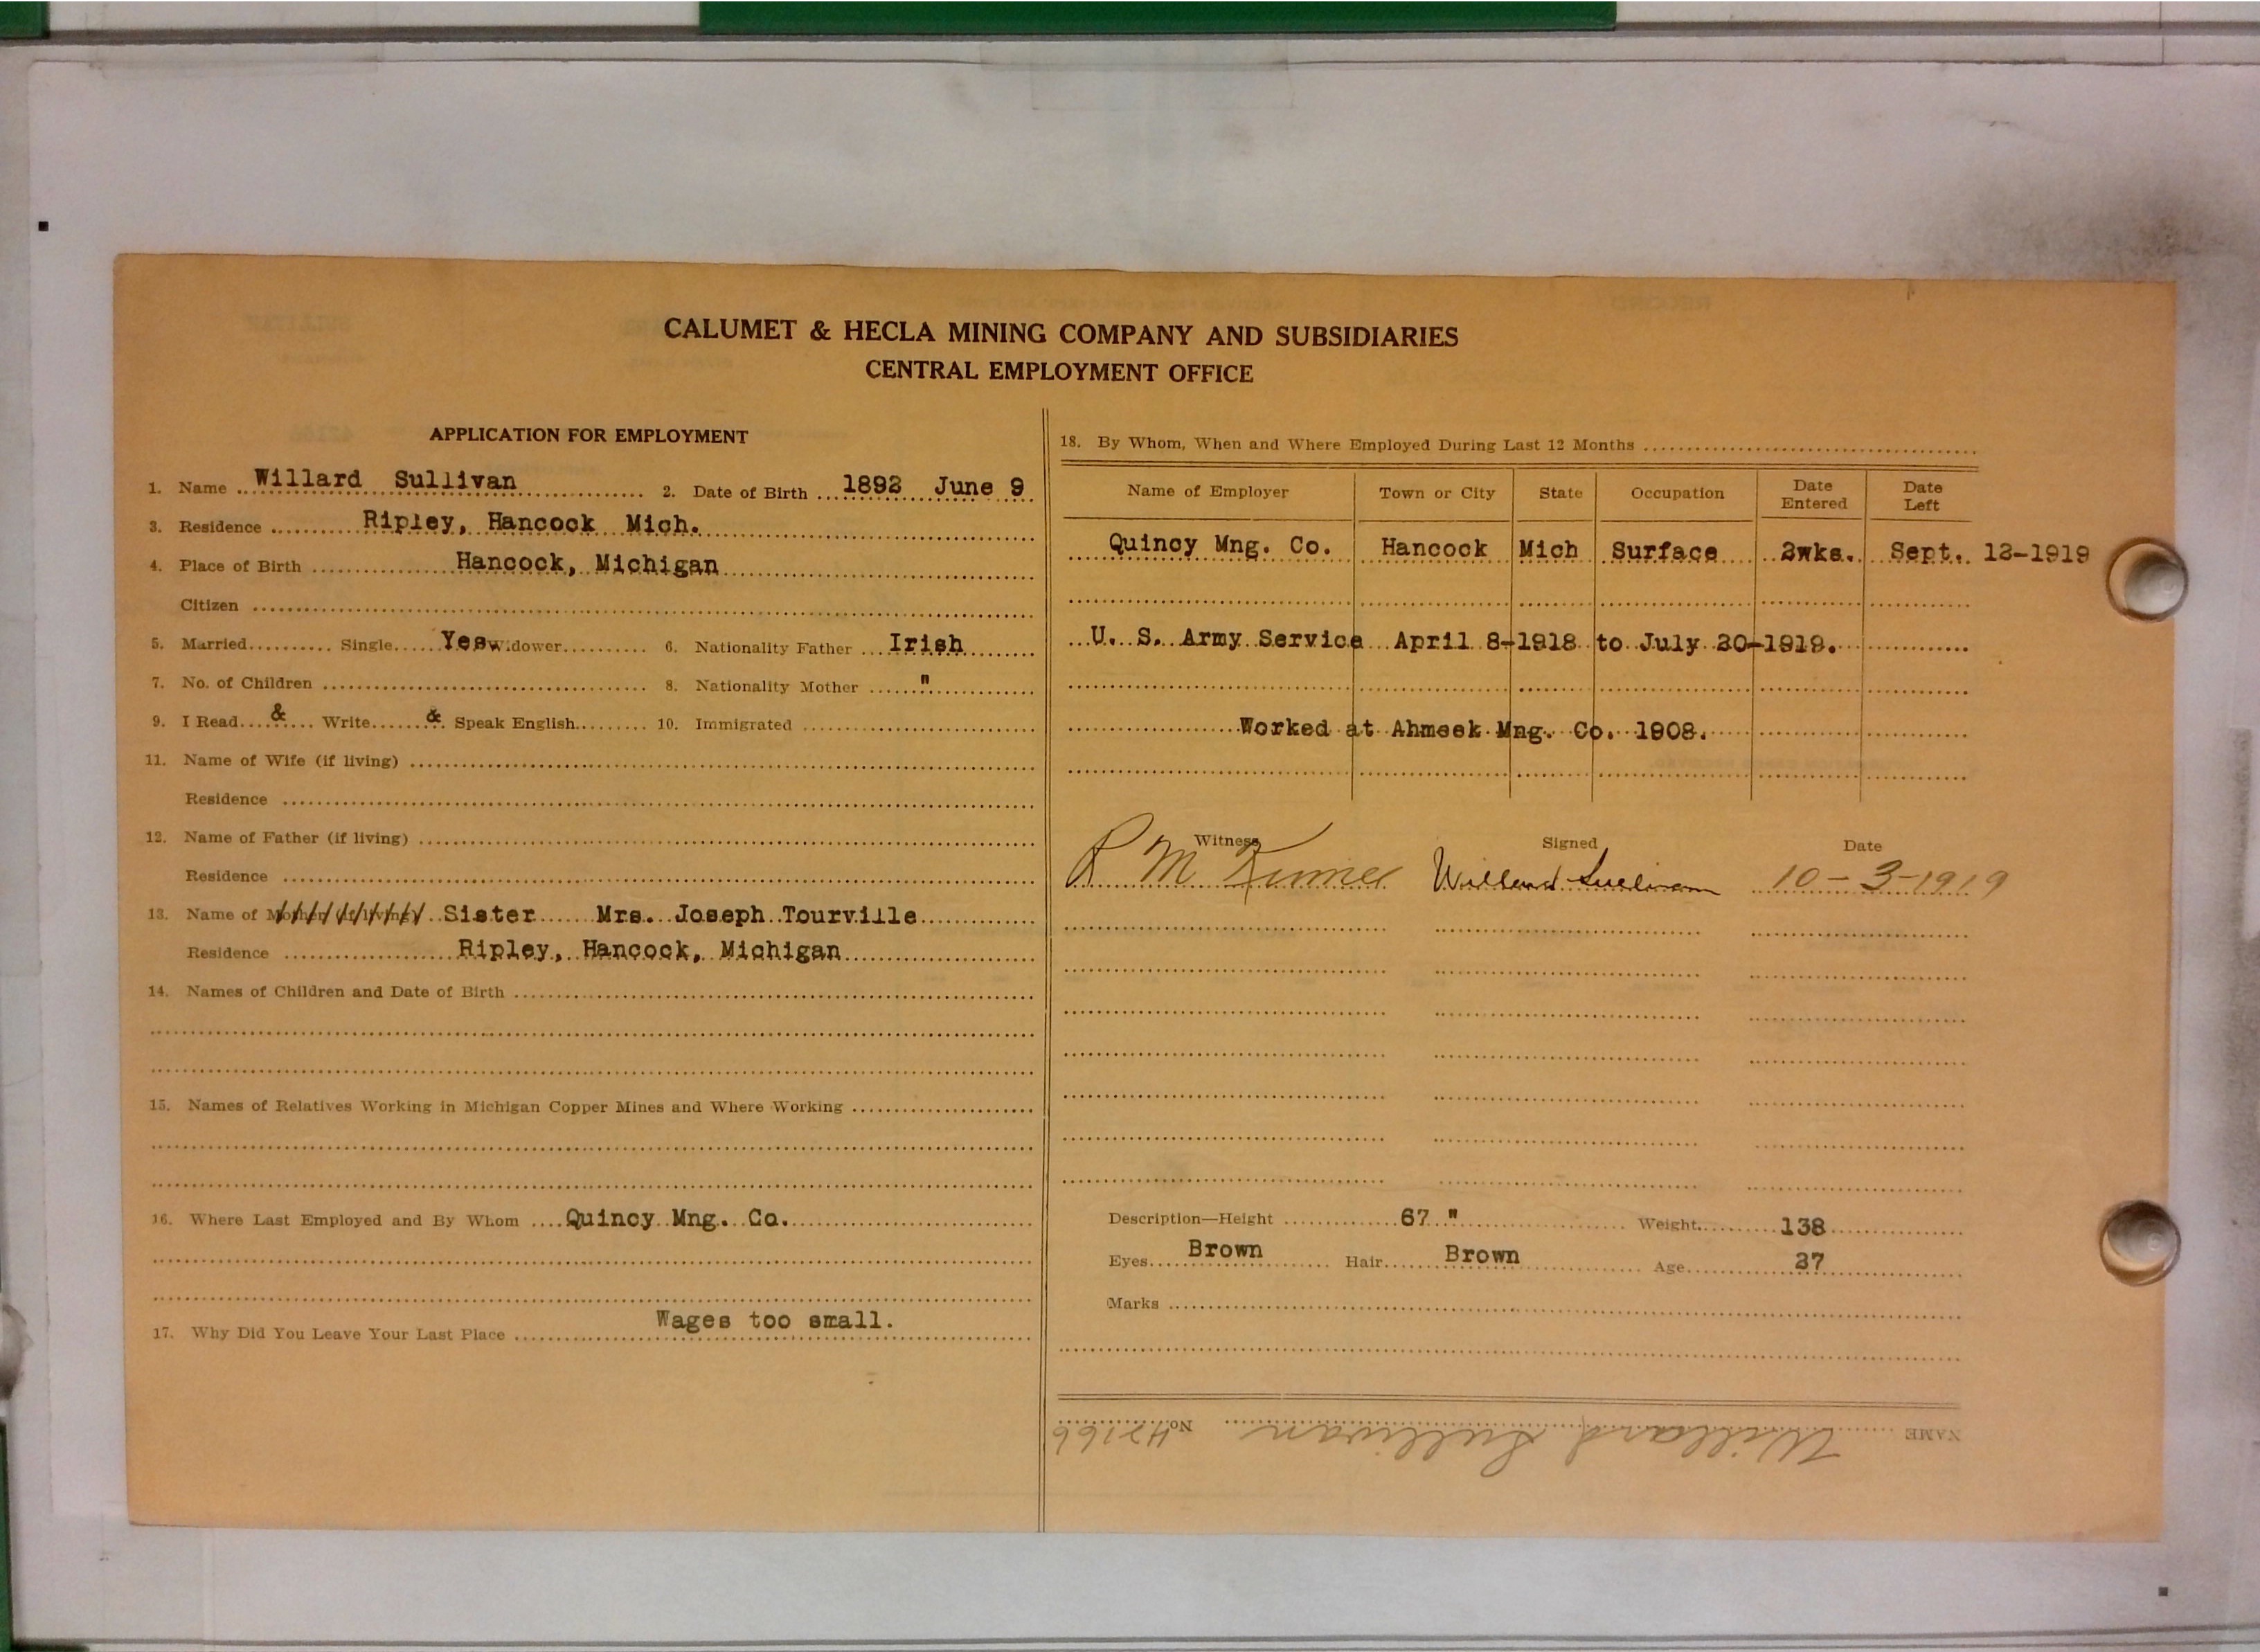 CALUMET & HECLA MINING COMPANY AND SUBSIDIARIES
CENTRAL EMPLOYMENT OFFICE
APPLICATION FOR EMPLOYMENT
1. Name Willard Sullivan 2. Date of Birth 1892 June 9
3. Residence Ripley, Hancock Mich.
4. Place of Birth Hancock, Michigan
Citizen
5. Married Single Yes Widower 6. Nationality Father Irish
7. No. of Children 8. Nationality Mother "
9. I Read & Write & Speak English 10. Immigrated
11. Name of Wife (if living)
Residence
12. Name of Father (if living)
Residence
13. Name of Mother (if living) Sister Mrs. Joseph Tourville
Residence Ripley, Hancock, Michigan
14. Names of Children and Date of Birth
15. Names of Relatives Working in Michigan Copper Mines and Where Working
16. Where Last Employed and By Whom Quincy Mng. Co.
17. Why Did You Leave Your Last Place Wages too small.
18. By Whom, When and Where Employed During Last 12 Months
Name of Employer Town or City State Occupation Date Entered Date Left
Quincy Mng. Co. Hancock Mich Surface 2wks. Sept. 12-1919
U. S. Army Service April 8-1918 to July 20-1919.
Worked at Ahmeek Mng. Co. 1908.
Witness Signed Date
R M Willard Sullivan 10-3-1919
Description—Height 67 " Weight 138
Eyes Brown Hair Brown Age 27
Marks
NAME Willard Sullivan No 42166